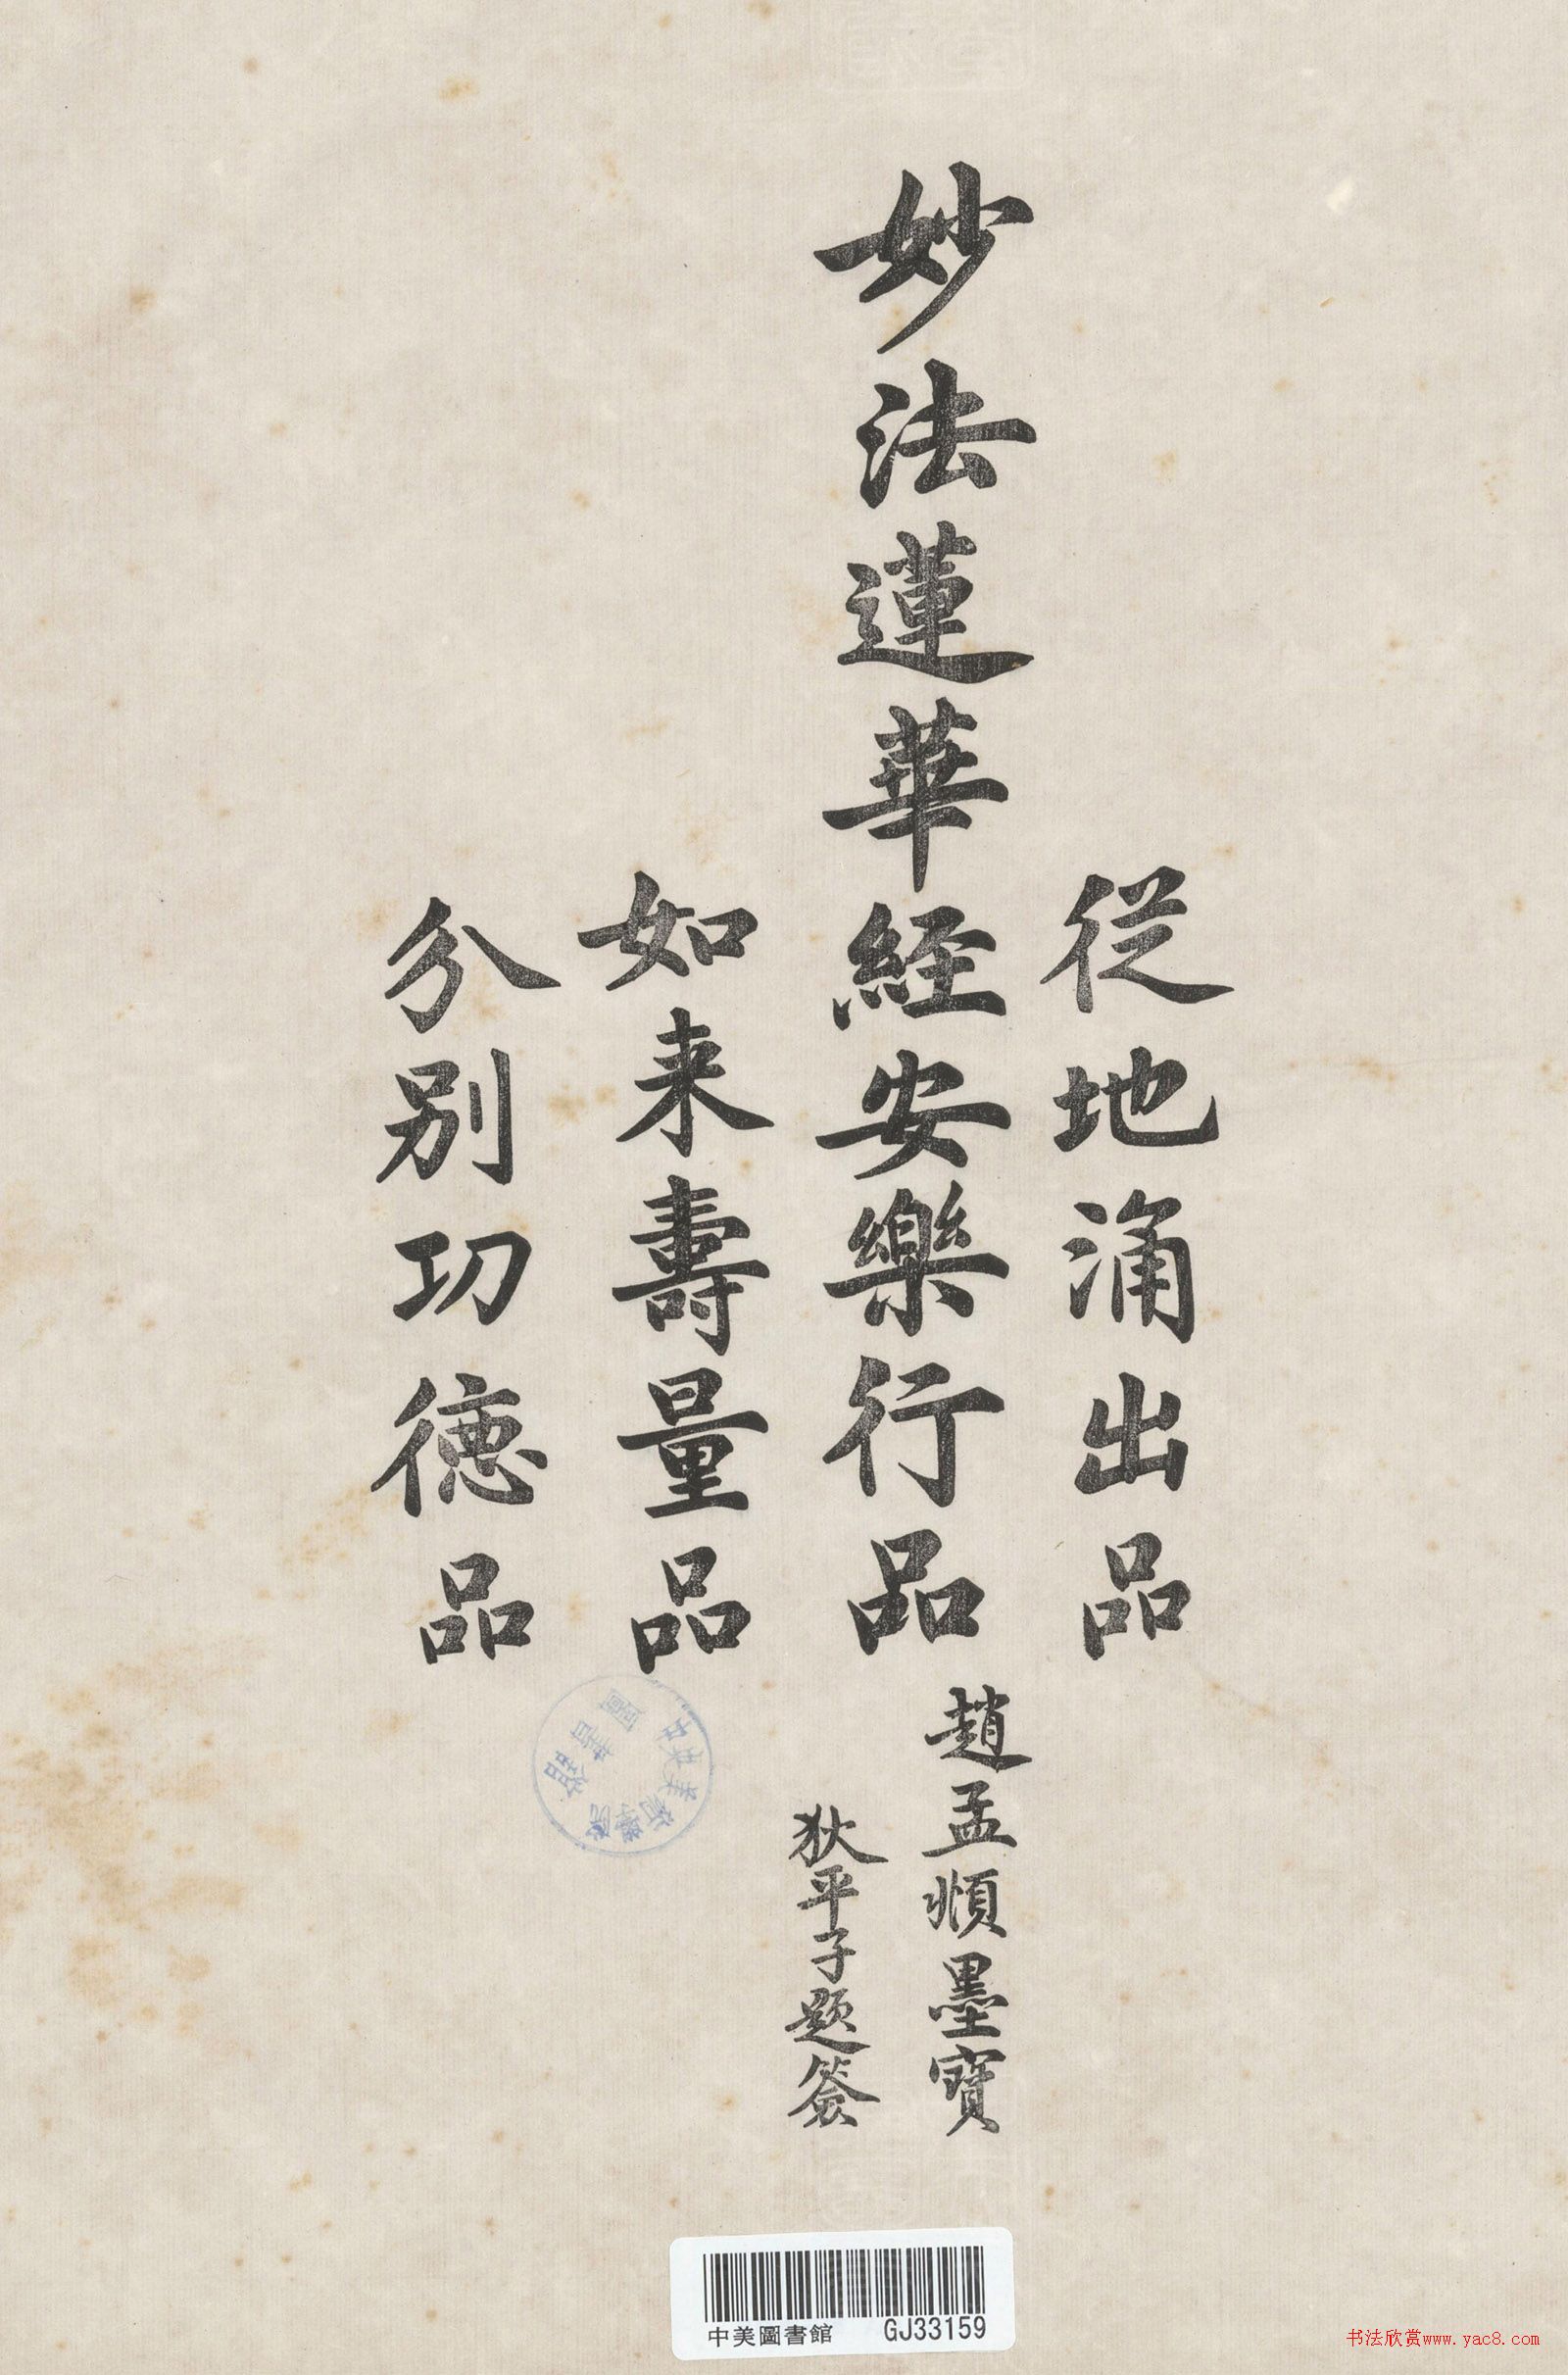 從地涌出品
妙法蓮華經安樂行品
趙孟頫墨寶
狄平子題簽
如来壽量品
分别功德品
中央美術學院
圖書館
中美圖書館 GJ33159
书法欣赏www.yac8.com